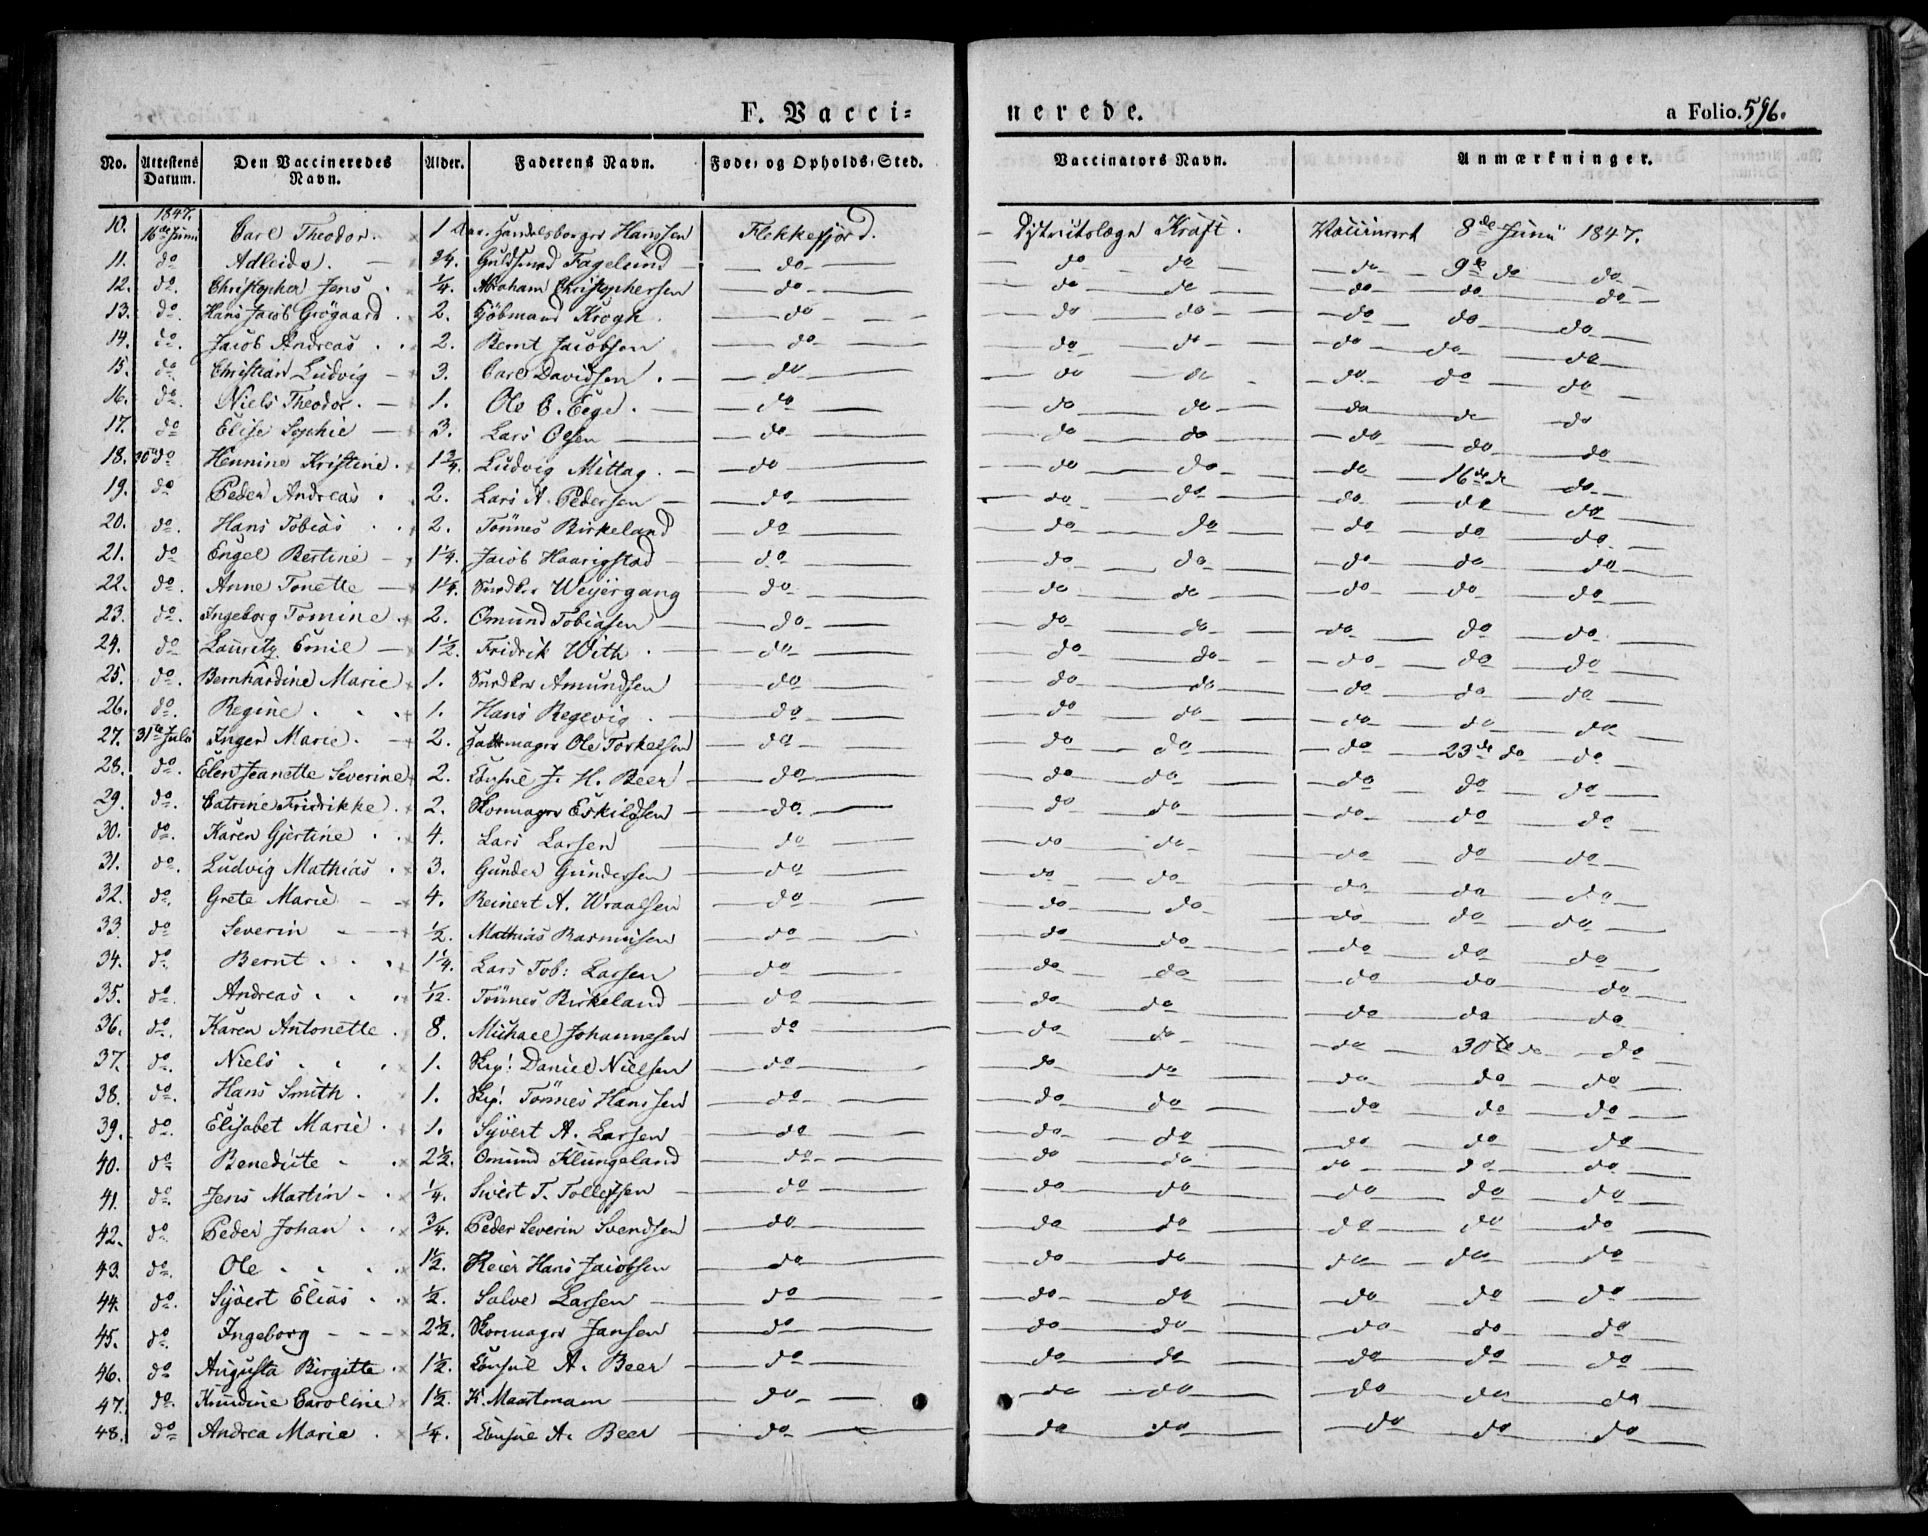 F. Vaccinerede. a Folio. 596.
No. Attestens Datum. Den Vaccineredes Navn. Alder. Faderens Navn. Føde- og Opholds-Sted. Vaccinators Navn. Anmærkninger.
1847.
10. 16de Juni Carl Theodor. 1 Handelsborger Hanssen Flekkefjord. Districtslæge Kraft. Vaccineret 8de Junii 1847.
11. do Adleide. 3/4. Guldsmed Fagelund do do do do 9de do do
12. do Christopher Jens 1/4. Abraham Christophersen do do do do do do
13. do Hans Jacob Grögaard 2. Kjöbmand Krogh do do do do do do
14. do Jacob Andreas 2. Bernt Jacobsen do do do do do do
15. do Christian Ludvig 3. Carl Davidsen do do do do do do
16. do Niels Theodor. 1. Ole O. Eege. do do do do do do
17. do Elise Sophie 3. Lars Olsen do do do do do do
18. 30 do Hennine Kristine. 1 3/4. Ludvig Mittag. do do do do 16de do do
19. do Peder Andreas 2. Lars A. Pedersen do do do do do do
20. do Hans Tobias 2. Tönnes Birkeland do do do do do do
21. do Engel Bertine 1 1/4. Jacob Haarigstad do do do do do do
22. do Anne Tonette 1 1/4. Snedker Weyergang do do do do do do
23. do Ingeborg Tomine. 2. Omund Tobiasen do do do do do do
24. do Lauritz Emil 1 1/2. Fridrik With do do do do do do
25. do Bernhardine Marie 1. Snedker Amundsen do do do do do do
26. do Regine 1. Hans Regevig do do do do do do
27. 31te Juli Inger Marie. 2. Hattemager Ole Torkelsen do do do do 23de do do
28. do Elen Jeanette Severine 2. Consul J. H. Beer do do do do do do
29. do Catrine Fridrikke. 2. Skormager Eskildsen do do do do do do
30. do Karen Gjertine 4. Lars Larsen do do do do do do
31. do Ludvig Mathias 3. Gunder Gundersen do do do do do do
32. do Grete Marie 4. Reinert A. Wraalsen do do do do do do
33. do Severin 1/2. Mathias Rasmusen do do do do do do
34. do Bernt 1 1/4. Lars Tob: Larsen do do do do do do
35. do Andreas 1/12. Tönnes Birkeland do do do do do do
36. do Karen Antonette. 8. Michael Johannesen do do do do 30te do do
37. do Niels 1. Skp: Daniel Nielsen do do do do do do
38. do Hans Smith. 1. Skp: Tönnes Hanssen do do do do do do
39. do Elisabet Marie. 1. Syvert A. Larsen do do do do do do
40. do Benedicte 2 1/2. Omund Klungeland do do do do do do
41. do Jens Martin 1/4. Sivert T. Tollefsen do do do do do do
42. do Peder Johan 3/4. Peder Severin Svendsen do do do do do do
43. do Ole 1 1/2. Reier Hans Jacobsen do do do do do do
44. do Syvert Elias 1/2. Salve Larsen do do do do do do
45. do Ingeborg 2 1/2. Skormager Jansen do do do do do do
46. do Augusta Birgitte 1 1/2. Consul A. Beer do do do do do do
47. do Knudine Caroline 1 1/2. K. Maartmann do do do do do do
48. do Andrea Marie 1/4. Consul A. Beer do do do do do do